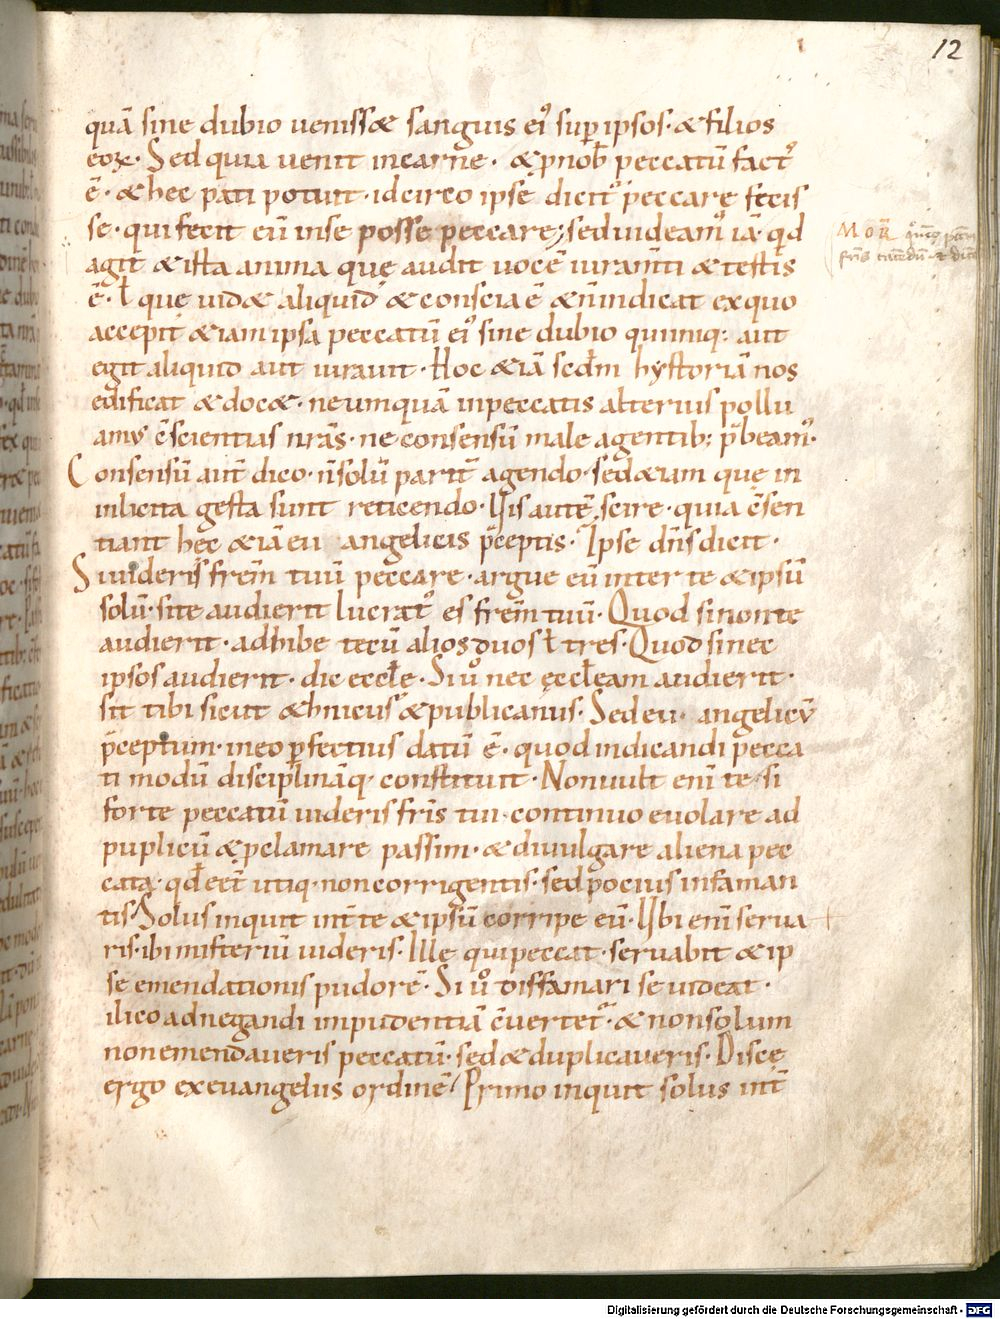 12
quā sine dubio ueniss& sanguis ei᾽ sup ipsos· & filios
eoꝝ· Sed quia uenit incarne· & ꝓ nob̄ peccatū fact᾽
ē· & hec pati potuit· idcirco ipse dicit᾽ peccare fecis
se· qui fecit eū inse posse peccare; sed uideam᾽ iā qđ
agit & ista anima que audit uocē iuram̄ti & testis
ē· ł que uid& aliquid & conscia ē & n̄ indicat ex quo
accepit & iam ipsa peccatū ei᾽ sine dubio qui
egit aliquid aut iurauit· Hoc &iā scđm hystoriā nos
edificat & doc&· ne umquā inpeccatis alterius pollu
amꝰ c̄scientias nr̄as· ne consensū male agentib; p̄beam᾽·
Consensū aut̄ dico· n̄ solū parit̄ agendo· sed &iam que in
inlicita gesta sunt reticendo· Uis autē scire· quia c̄sen
tiant hec &iā eu angelicis p̄ceptis· Ipse dn̄s dicit·
Si uideris frēm tuū peccare· argue eū inter te & ipsū
solū· si te audierit lucrat᾽ es frēm tuū· Quod si non te
audierit· adhibe tecū alios duos ł tres· Quod si nec
ipsos audierit· dic eccłe· Si uº nec ęccłeam audierit·
sit tibi sicut &hnicus & publicanus· Sed eu angelicū
p̄ceptum· in eo ꝑfectius datū ē· quod indicandi pecca
ti modū disciplināq· constituit· Non uult eni te· si
forte peccatū uideris fr̄is tui· continuo euolare ad
puplicū & ꝓclamare passim· & diuulgare aliena pec
cata· qđ eēt utiq· non corrigentis· sed pocius infaman
tis· Solus inquit int̄ te & ipsū corripe eū· Ubi eni serua
ri sibi misteriū uideris· Ille qui peccat· seruabit & ip
se emendationis pudorē· Si uº diffamari se uideat·
ilico ad negandi impudentiā c̄uertet᾽· & non solum
non emendaueris peccatū· sed & duplicaueris· Disce
ergo ex euangeliis ordinē· Primo inquit solus int̄
MOR
Digitalisierung gefördert durch die Deutsche Forschungsgemeinschaft - DFG